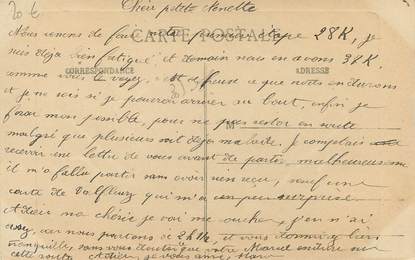 20 €
Chère petite Ninette
CARTE POSTALE
Nous venons de faire notre première étape 28K, je
suis déjà bien fatigué, et demain nous en avons 32K,
CORRESPONDANCE
ADRESSE
comme vous le voyez, c'est affreuse ce que nous endurons
et je ne sais si je pourrai arriver au bout, enfin je
ferai mon possible, pour ne pas rester en route
M
malgré que plusieurs soit déjà malade. Je comptais
recevoir une lettre de vous avant de partir, malheureusement
il m'a fallu partir sans avoir rien reçu, sauf une
carte de qui m'a un peu surprise.
Adieu ma chérie je vais me coucher, j'en n'ai
assez, car nous partons à 2h ½, et vous dormirez bien
tranquille, sans vous douter que votre Marcel sur
cette route. Adieu, je vous aime, Marcel